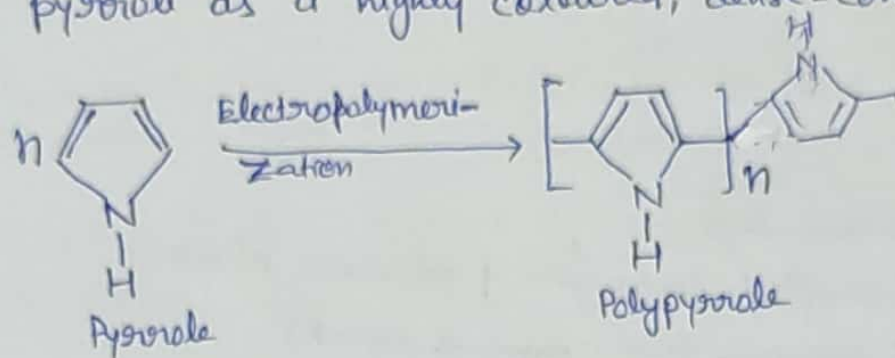 as a highly
H
N
n
Electropolymeri-
Zation
n
N
H
N
H
Pyrrole
Polypyrrole